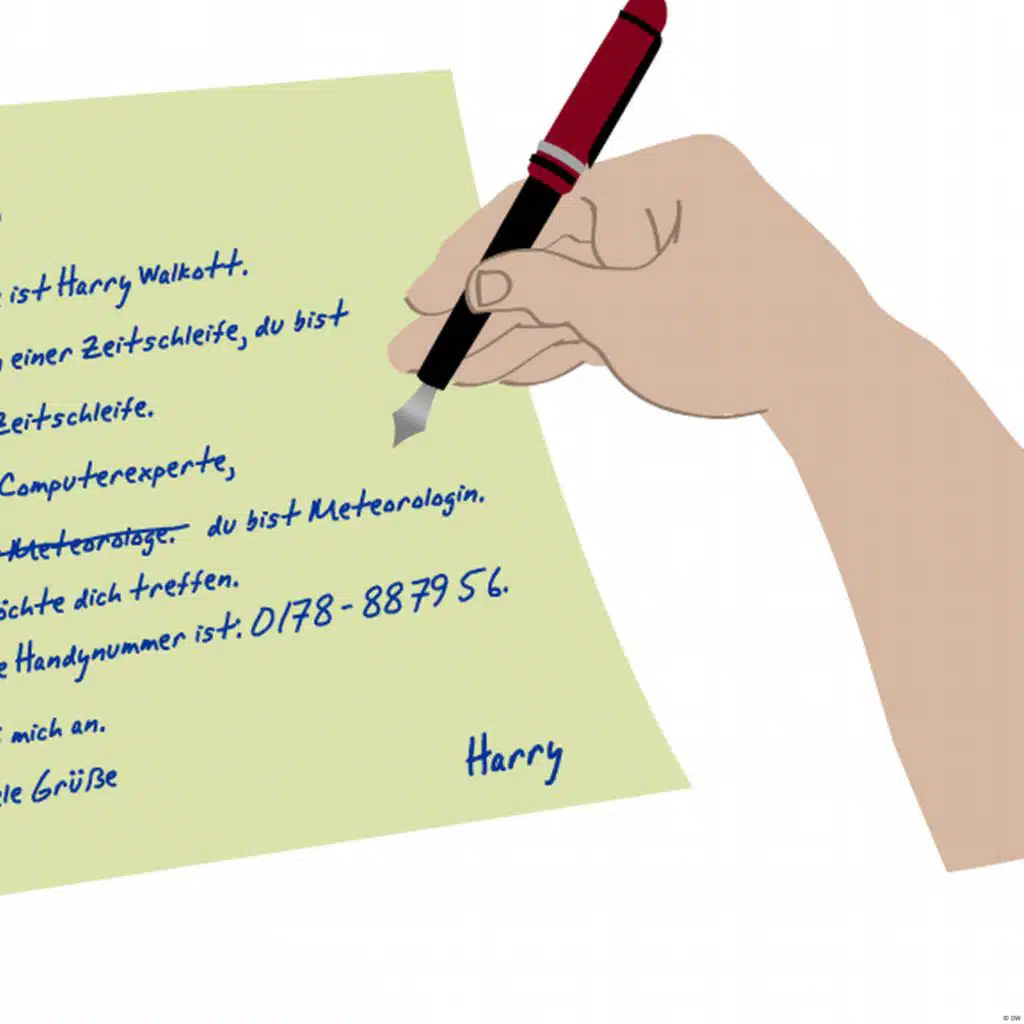 ist Harry Walkott.
einer Zeitschleife, du bist
Zeitschleife.
Computerexperte,
Meteorologe. du bist Meteorologin.
öchte dich treffen.
e Handynummer ist: 0178-8879 56.
mich an.
ele Grüße
Harry
© DW